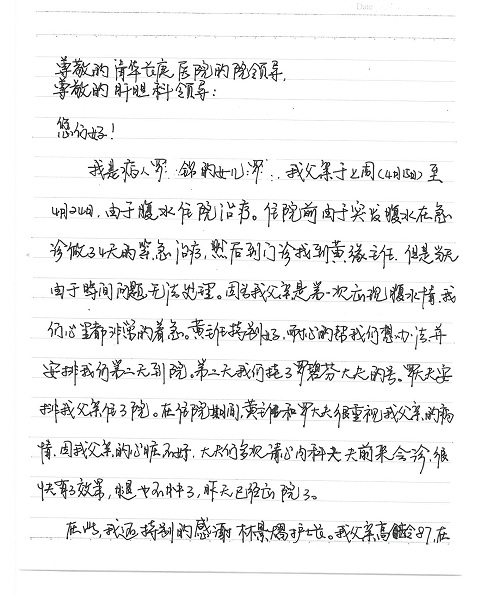 Date
尊敬的清华长庚医院的院领导,
尊敬的肝胆科领导:
您们好!
我是病人罗 铭的女儿罗 . 我父亲于上周(4月18日)至
4月24日,由于腹水住院治疗。住院前由于突发腹水在急
诊做了4天的紧急治疗,然后到门诊找到黄 主任.但是当天
由于時间问题,无法处理。因为我父亲是第一次出现腹水情,我
们心里都非常的着急。黄主任特别好,耐心的帮我们想办法,并
安排我们第二天到院。第二天我们挂了罗碧芬大夫的号。罗大夫安
排我父亲住了院。在住院期间,黄主任和罗大夫很重视我父亲的病
情.因我父亲的心脏不好.大夫们多次请心内科大夫前来会诊.很
快有了效果,腿也不肿了,昨天已经出院了。
在此,我还特别的感谢 林景 护士长。我父亲高龄87,在